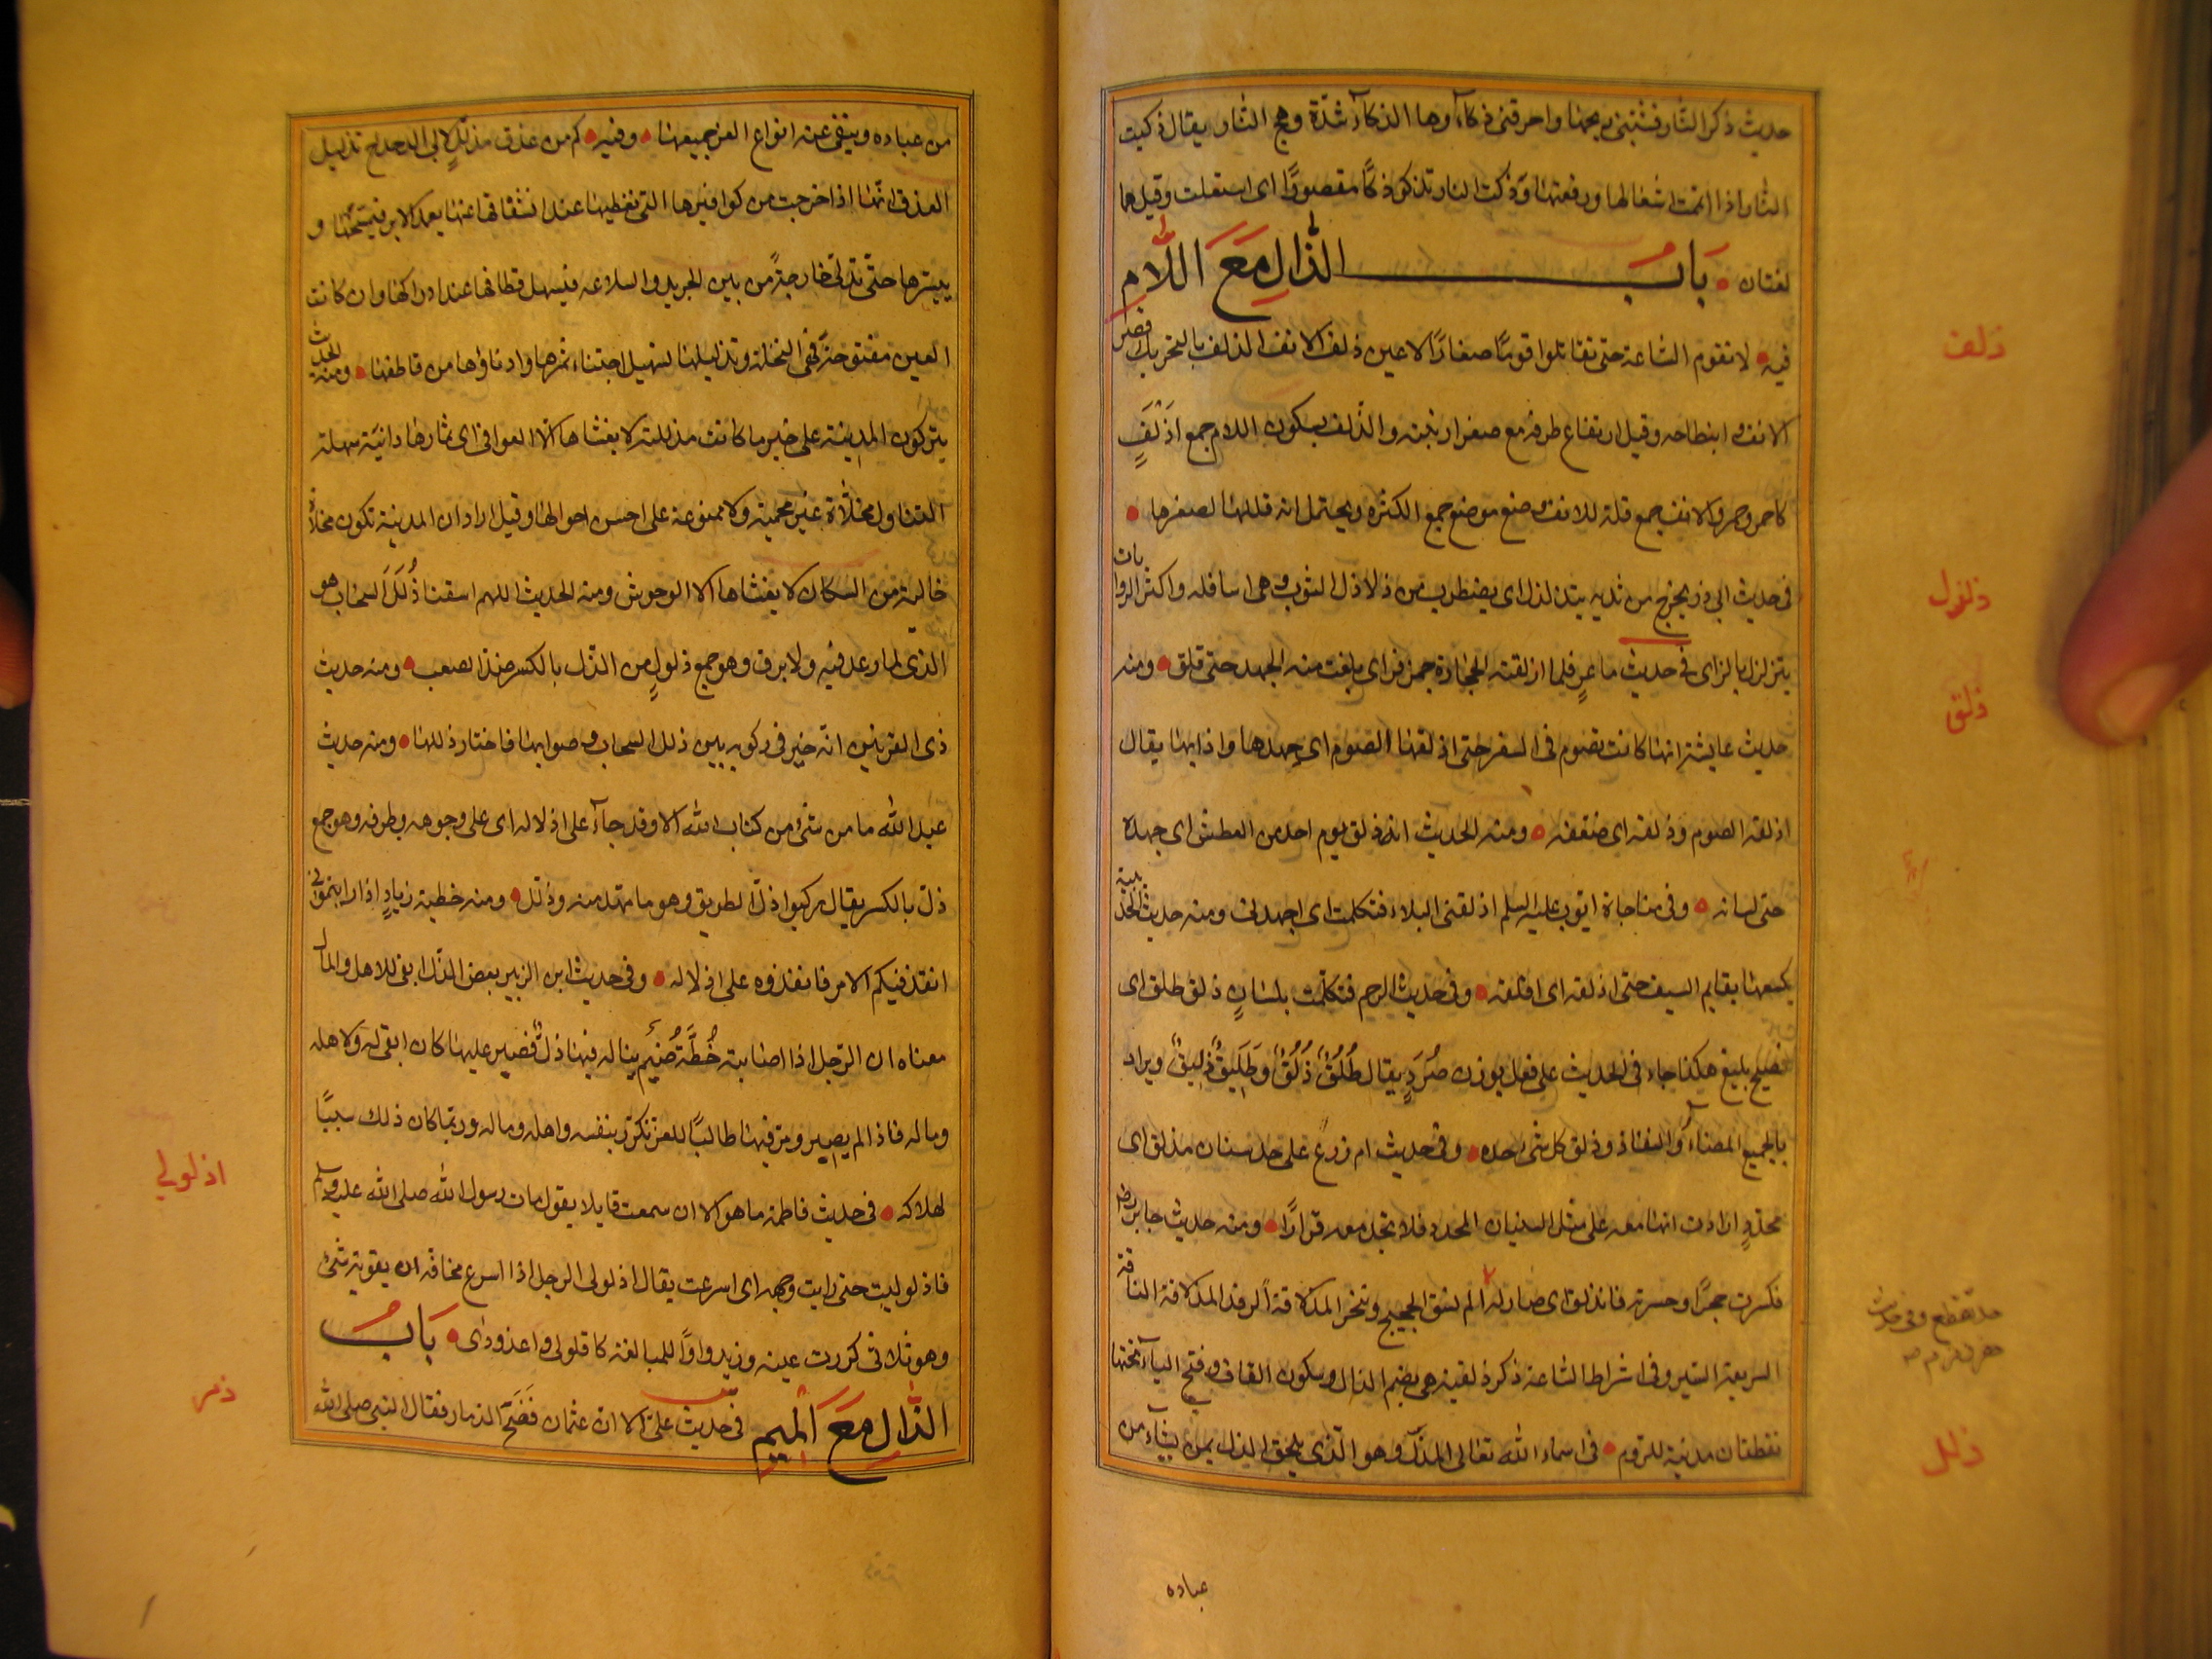 حديث ذكر النار قشبني ريحها واحرقني ذكاؤها الذكاء شدة وهج النار يقال ذكيت
النار اذا اتممت اشعالها ورفعتها وذكت النار تذكو ذكا مقصورا اى اشتعلت وقيل هما
لغتان باب الذال مع اللام
فيه لا تقوم الساعة حتى تقاتلوا قوما صغار الاعين ذلف الانف الذلف بالتحريك قصر
الانف وانبطاحه وقيل ارتفاع طرفه مع صغر ارنبته والذلف بسكون اللام جمع اذلف
كاحمر وحمر والانف جمع قلة للانف وضع موضع جمع الكثرة ويحتمل انه قللها لصغرها
فى حديث ابى ذر يخرج من ثديه يتذلذل اى يضطرب من ذلاذل الثوب وهى اسافله واكثر الروايات
يتزلزل بالزاى فى حديث ماعز فلما اذلقته الحجارة جمز فر اى بلغت منه الجهد حتى قلق ومنه
حديث عايشة انها كانت تصوم فى السفر حتى اذلقها الصوم اى جهدها واذابها يقال
اذلقه الصوم وذلقه اى ضعفه ومنه الحديث انه ذلق يوم احد من العطش اى جهده
حتى لسانه وفى مناجاة ايوب عليه السلم اذلقنى البلاء فتكلمت اى اجهدنى ومنه حديث الحديبية
يكسعها بقايم السيف حتى اذلقه اى اقلقه وفى حديث الرحم فتكلمت بلسان ذلق طلق اى
فصيح بليغ هكذا جاء فى الحديث على فعل بوزن صرد يقال طلق ذلق وطليق ذليق ويراد
بالجميع المضاء والنفاذ وذلق كل شى حده وفى حديث ام زرع على حد سنان مذلق اى
محدد ارادت انها معه على مثل السنان المحدد فلا تجد معه قرارا ومنه حديث جابر
فكسرت حجرا وحسرته فانذلق اى صار له
السريعة السير وفى اشراط الساعة ذكر ذلقية هى بضم الذال وسكون القاف وفتح الياء تحتها
نقطتان مدينة للروم فى اسماء الله تعالى المذل وهو الذى يلحق الذل بمن يشاء من
ذلف
ذلذل
ذلق
حد يقطع وفى حديث
ذلل
عباده
من عباده وينفى عنه انواع العز جميعها وفيه كم من عذق مذلل لابى الدحداح تذليل
العذق انها اذا خرجت من كوافيرها التى تغطيها عند انشقاقها عنها يعمد الابر فيسمحها و
ييسرها حتى تتدلى خارجة من بين الجريد والسلاء فيسهل قطافها عند ادراكها وان كانت
العين مفتوحة فهى النخلة وتذليلها تسهيل اجتناء ثمرها وادناؤها من قاطفها ومنه الحديث
يتركون المدينة على خير ما كانت مذللة لا يغشاها الا العوافى اى ثمارها دانية سهلة
التناول مخلاة غير محمية ولا ممنوعة على احسن احوالها وقيل اراد ان المدينة تكون مخلاة
خالية من السكان لا يغشاها الا الوحوش ومنه الحديث اللهم اسقنا ذلل السحاب هو
الذى لا رعد فيه ولا برق وهو جمع ذلول من الذل بالكسر ضد الصعب ومنه حديث
ذى القرنين انه خير فى ركوبه بين ذلل السحاب وصعابها فاختار ذللها ومنه حديث
عبد الله ما من شئ من كتاب الله الا وقد جاء على اذلاله اى على وجوهه وطرقه وهو جمع
ذل بالكسر يقال ركبوا ذل الطريق وهو ما مهد منه وذلل ومنه خطبة زياد اذا رايتمونى
انفذ فيكم الامر فانفذوه على اذلاله وفى حديث ابن الزبير بعض الذل ابقى للاهل والمال
معناه ان الرجل اذا اصابته خطة ضيم يناله فيها ذل فصبر عليها كان ابقى له ولاهله
وماله فاذا لم يصبر ومر فيها طالبا للعز غرر بنفسه واهله وماله وربما كان ذلك سببا
لهلاكه فى حديث فاطمة ما هو الا ان سمعت قايلا يقول مات رسول الله صلى الله عليه وسلم
فاذلوليت حتى رايت وجهه اى اسرعت يقال اذلولى الرجل اذا اسرع مخافة ان يفوته شئ
وهو ثلاثى كررت عينه وزيد واوا للمبالغة كاقلولى واغدودن باب
الذال مع الميم فى حديث على الا ان عثمان فضح الذمار فقال النبى صلى الله
اذلولى
ذمر